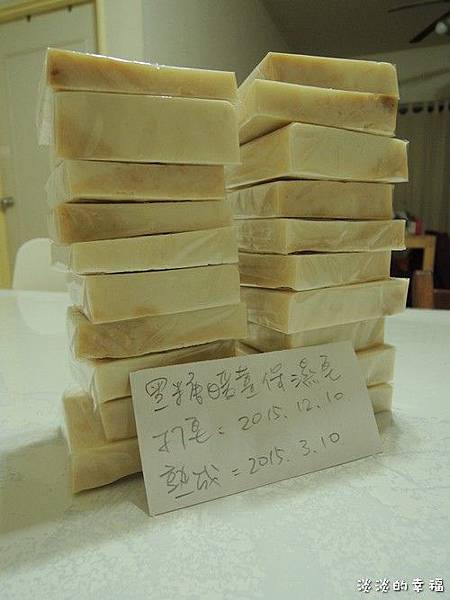 黑糖暖薑保濕皂
打皂=2015.12.10
熟成=2015.3.10
淡淡的幸福